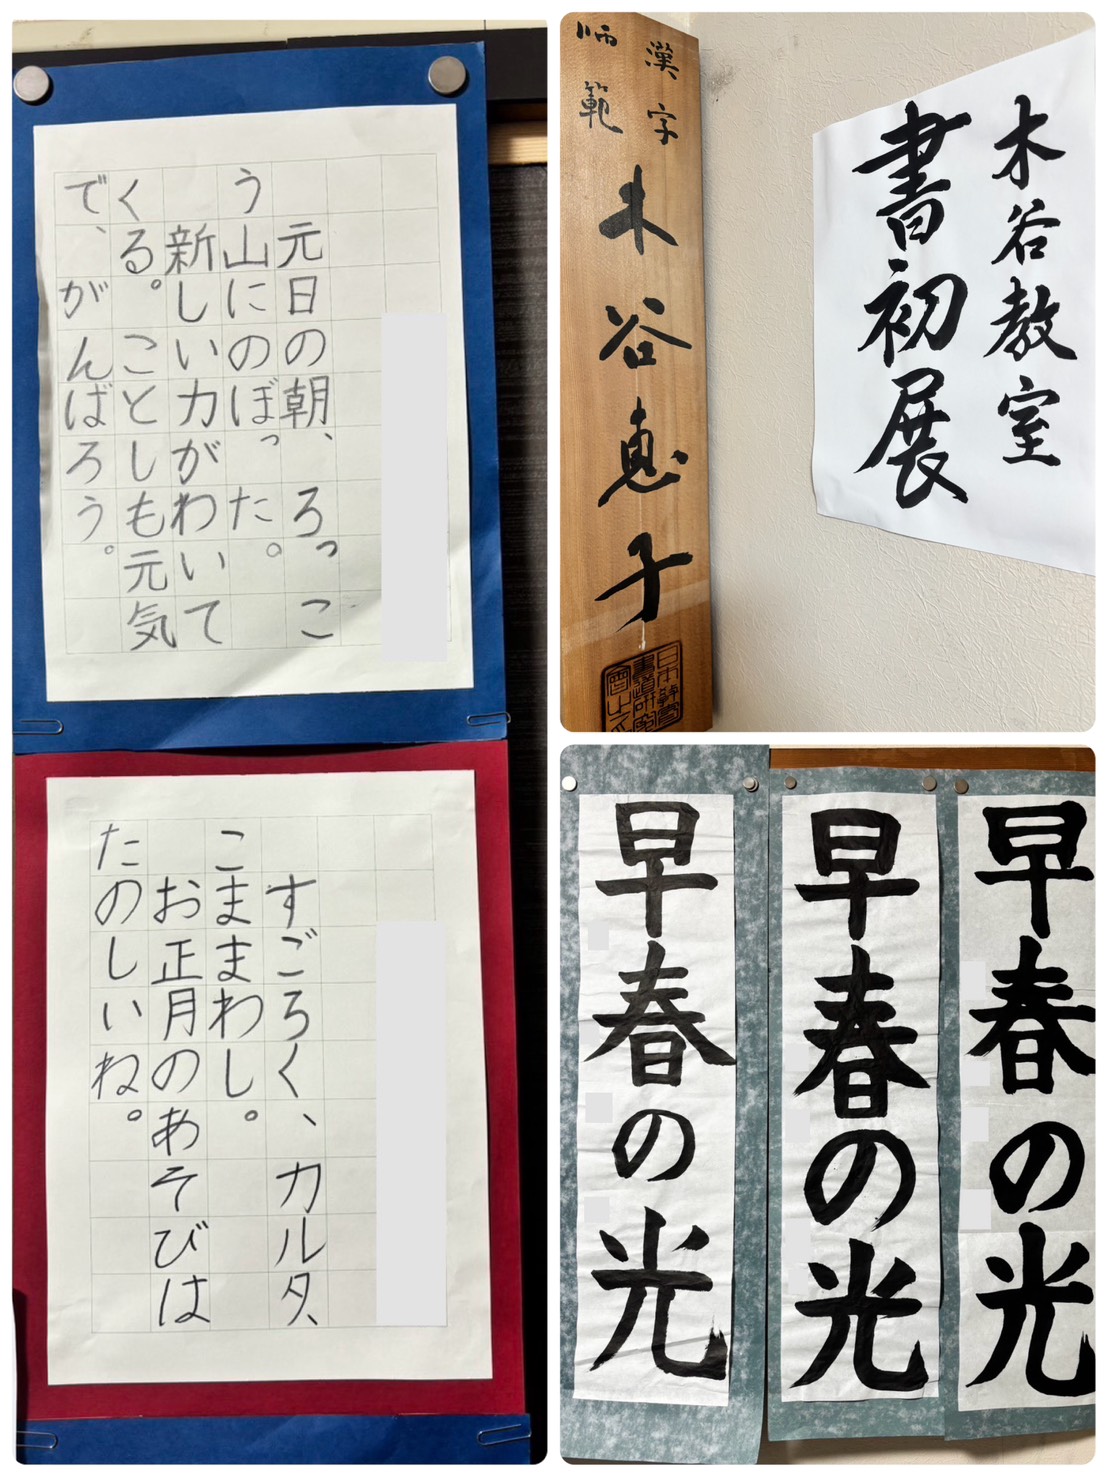 元日の朝、ろっこ
う山にのぼった。
新しい力がわいて
くる。ことしも元気
で、がんばろう。
すごろく、カルタ、
こままわし。
お正月のあそびは
たのしいね。
木谷教室
書初展
漢字
師範
木谷恵子
早春の光
早春の光
早春の光